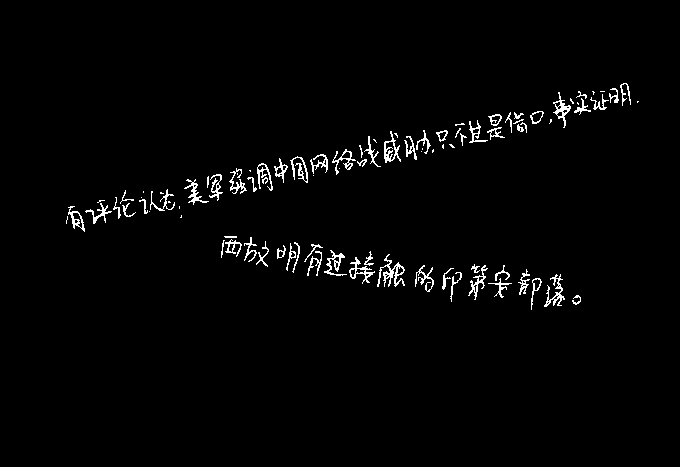 有评论认为,美军强调中国网络战威胁,只不过是借口,事实证明.
西方文明有过接触的印第安部落。